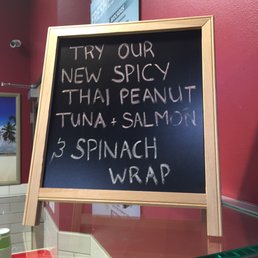 TRY OUR
NEW SPICY
THAI PEANUT
TUNA + SALMON
& SPINACH
WRAP